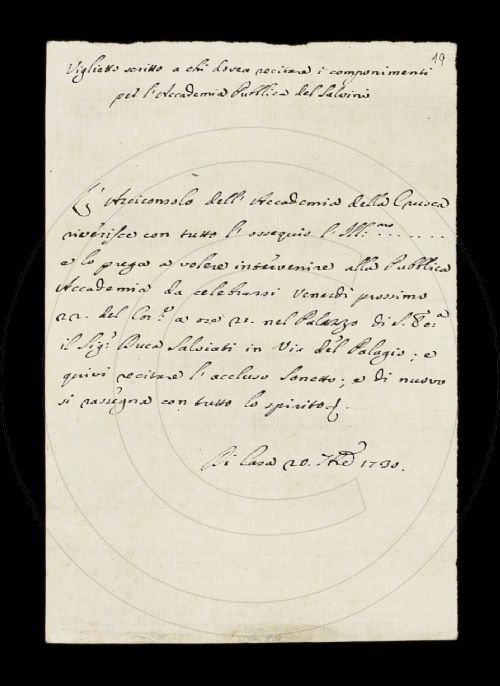 19
Viglietto scritto a chi dovea recitare i componimenti
per l'Accademia Pubblica del Salvini
L'Arciconsolo dell'Accademia della Crusca
riverisce con tutto l'ossequio l'Ill:mo . . . . . .
e lo prega a volere intervenire alla Pubblica
Accademia da celebrarsi Venerdì prossimo
22. del Corr:e a ore 21. nel Palazzo di S. Ec:a
il Sig:r Duca Salviati in Via del Palagio; e
quivi recitare l'accluso Sonetto; e di nuovo
si rassegna con tutto lo spirito
Di Casa 20. 7bre 1730.